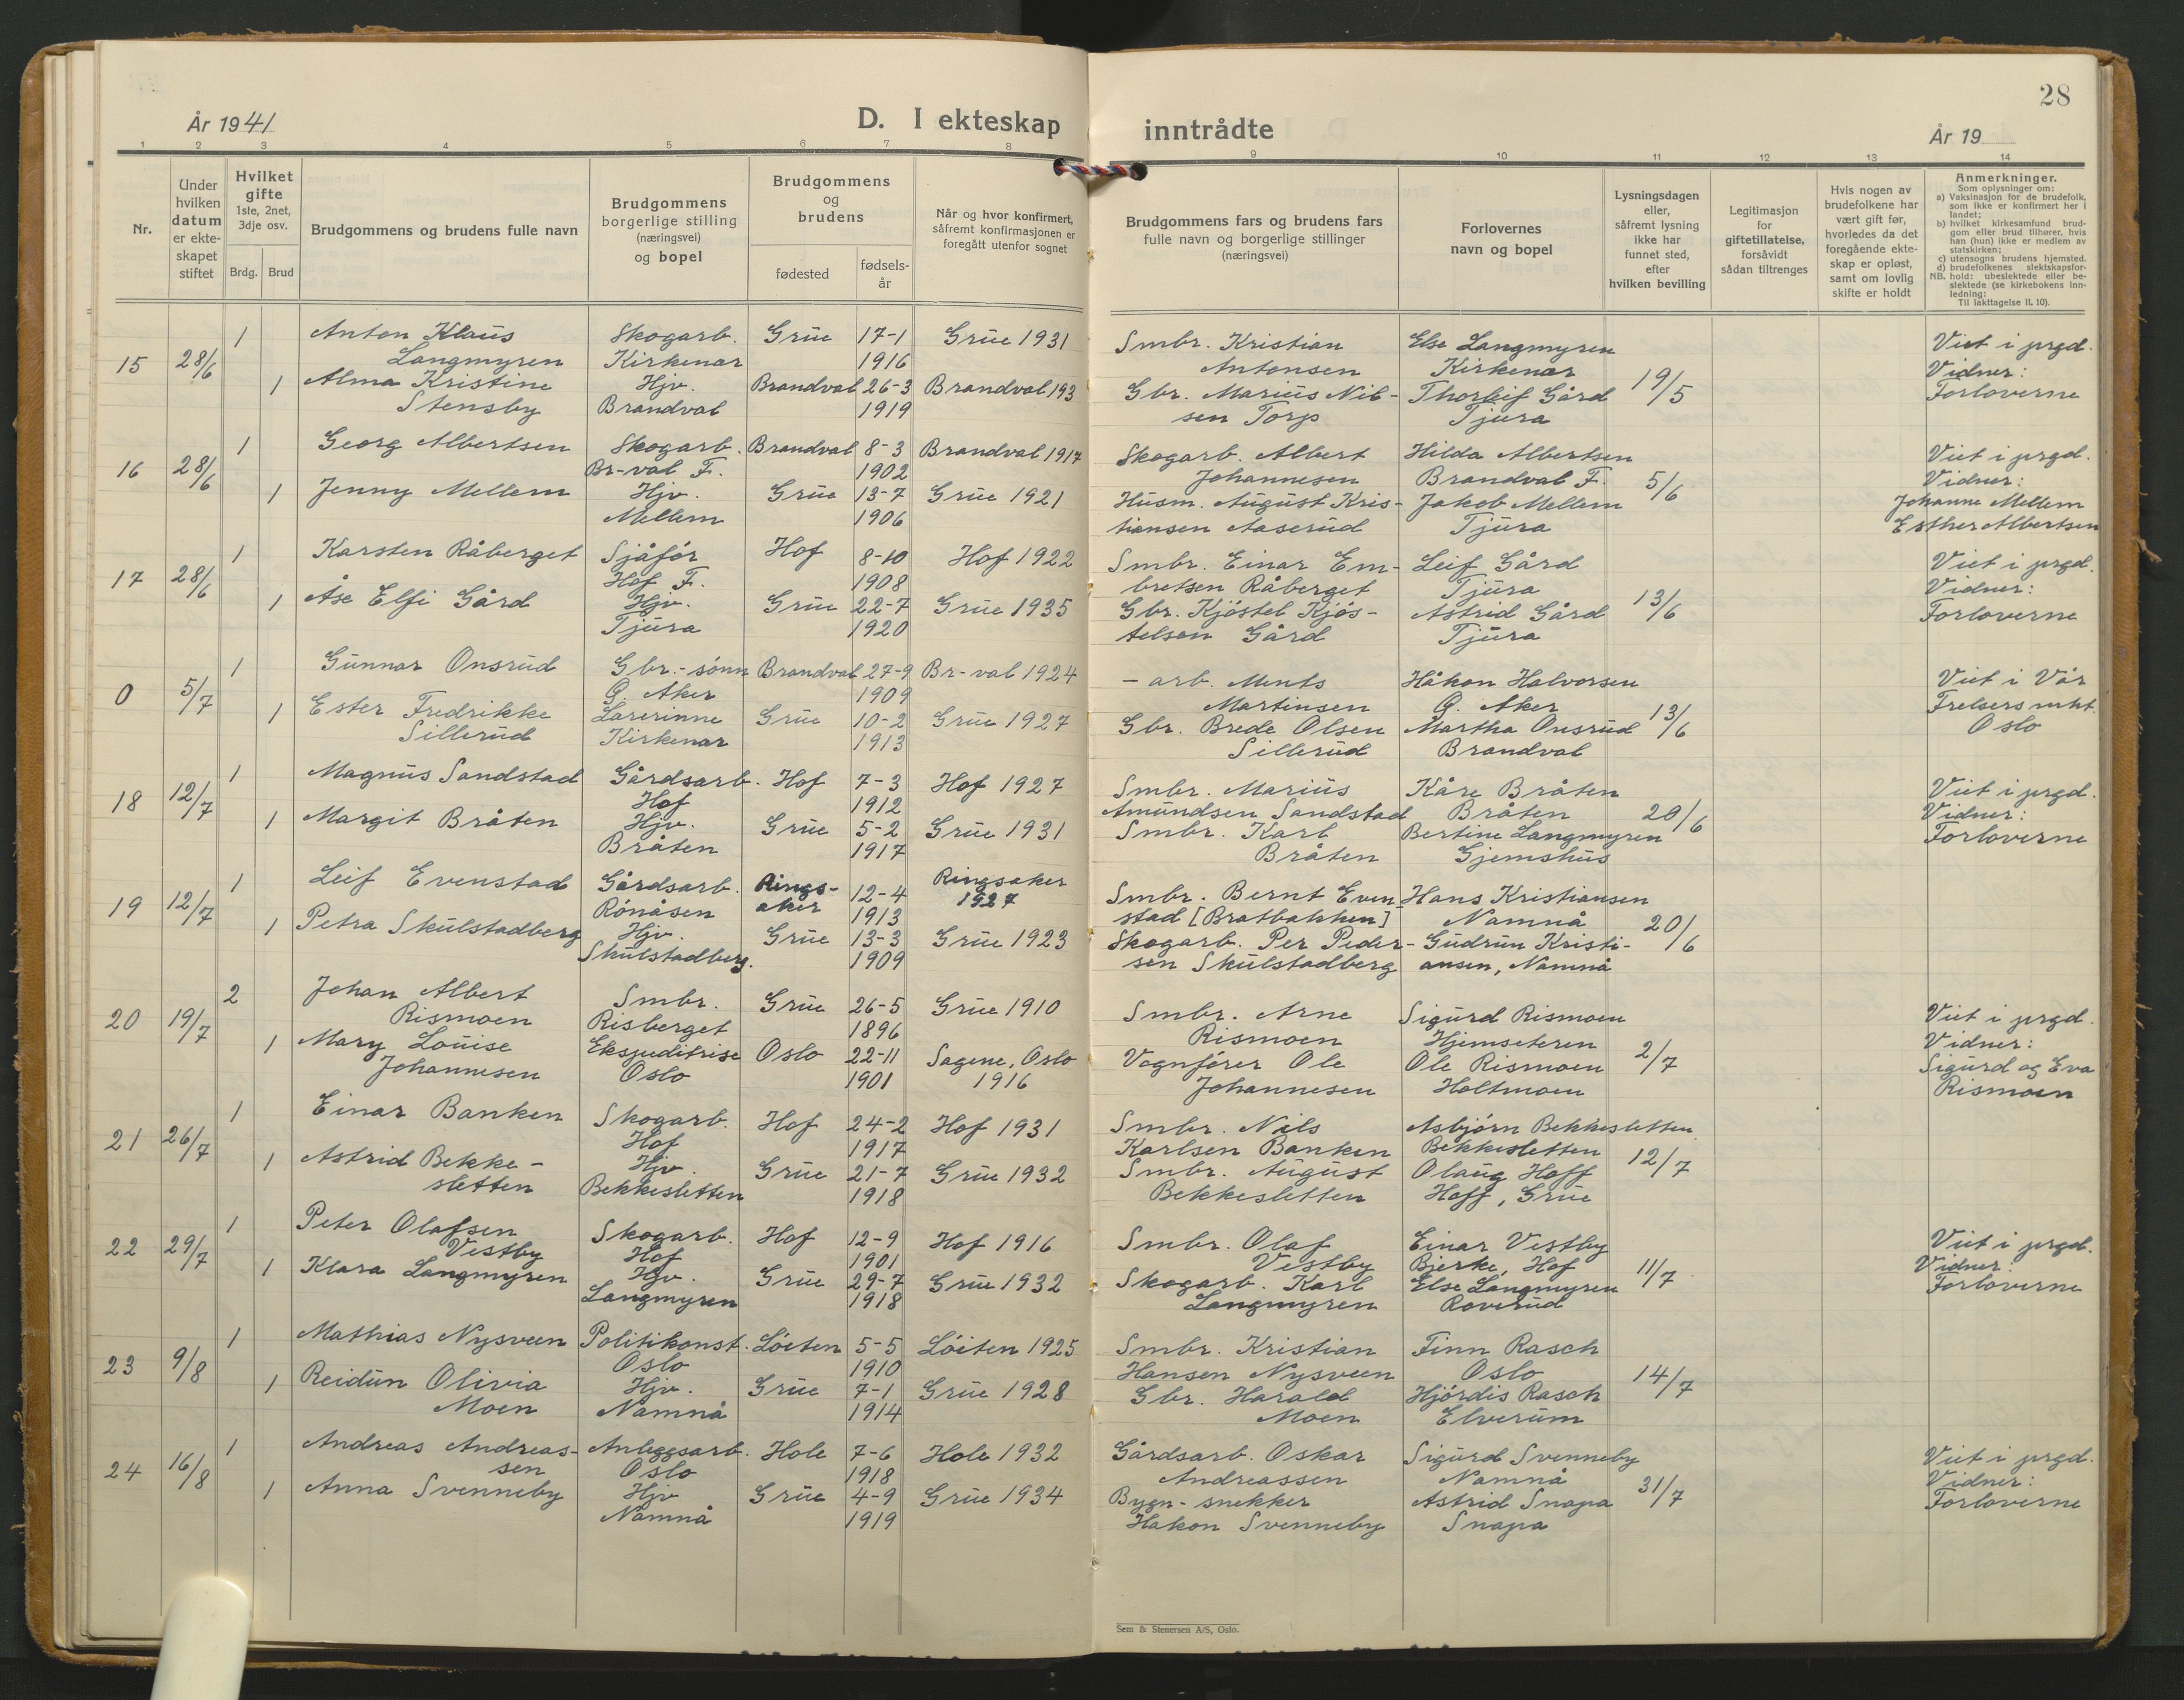 28
År 1941
D. I ekteskap
inntrådte
År 19
1 2 3 4 5 6 7 8 9 10 11 12 13 14
Nr.
Under hvilken datum er ekte-skapet stiftet
Hvilket gifte
1ste, 2net, 3dje osv.
Brdg. Brud
Brudgommens og brudens fulle navn
Brudgommens borgerlige stilling (næringsvei) og bopel
Brudgommens og brudens
fødested
fødsels-år
Når og hvor konfirmert, såfremt konfirmasjonen er foregått utenfor sognet
Brudgommens fars og brudens fars fulle navn og borgerlige stillinger (næringsvei)
Forlovernes navn og bopel
Lysningsdagen eller, såfremt lysning ikke har funnet sted, efter hvilken bevilling
Legitimasjon for giftetillatelse, forsåvidt sådan tiltrenges
Hvis nogen av brudefolkene har vært gift før, hvorledes da det foregående ekte-skap er opløst, samt om lovlig skifte er holdt
Anmerkninger.
Som oplysninger om:
a) Vaksinasjon for de brudefolk, som ikke er konfirmert her i landet;
b) hvilket kirkesamfund brud-gom eller brud tilhører, hvis han (hun) ikke er medlem av statskirken;
c) utensogns brudens hjemsted.
d) brudefolkenes slektskapsfor-hold: ubeslektede eller be-slektede (se kirkebokens inn-ledning:
NB. Til iakttagelse II. 10).
1 Anton Klaus Skogarb. Grue 17-1 Grue 1931 Smbr. Kristian Else Langmyren Viet i prgd.
15 28/6 Langmyren Kirkenær 1916 Antonsen Kirkenær Vidner:
1 Alma Kristine Hjv. Brandval 26-3 Brandval 193 Gbr. Marius Nil- Thorleif Gård 19/5 Forloverne
Stensby Brandval 1919 sen Torp Tjura
1 Georg Albertsen Skogarb. Brandval 8-3 Brandval 1917 Skogarb. Albert Hilda Albertsen Viet i prgd.
16 28/6 Br-val F. 1902 Johannesen Brandval F. 5/6 Vidner:
1 Jenny Mellem Hjv. Grue 13-7 Grue 1921 Husm. August Kris- Jakob Mellem Johanne Mellem
Mellem 1906 tiansen Aaserud Tjura Esther Albertsen
1 Karsten Råberget Sjåför Hof 8-10 Hof 1922 Smbr. Einar Em- Leif Gård Viet i prgd.
17 28/6 Hof F. 1908 bretsen Råberget Tjura Vidner:
1 Åse Elfi Gård Hjv. Grue 22-7 Grue 1935 Gbr. Kjöstel Kjös- Astrid Gård 13/6 Forloverne
Tjura 1920 telsen Gård Tjura
1 Gunnar Onsrud Gbr.-sönn Brandval 27-9 Br-val 1924 - arb. Ments Håkon Halvorsen Viet i Vår
0 5/7 G. Aker 1909 Martinsen G. Aker Frelsers mht.
1 Ester Fredrikke Lærerinne Grue 10-2 Grue 1927 Gbr. Brede Olsen Martha Onsrud 13/6 Oslo
Sillerud Kirkenær 1913 Sillerud Brandval
1 Magnus Sandstad Gårdsarb. Hof 7-3 Hof 1927 Smbr. Marius Kåre Bråten Viet i prgd.
18 12/7 Hof 1912 Amundsen Sandstad Bråten 20/6 Vidner:
1 Margit Bråten Hjv. Grue 5-2 Grue 1931 Smbr. Karl Bertine Langmyren Forloverne
Bråten 1917 Bråten Gjemshus
1 Leif Evenstad Gårdsarb. Rings- 12-4 Ringsaker Smbr. Bernt Even- Hans Kristiansen
19 12/7 Rönåsen aker 1913 1927 stad [Bratbakken] Namnå 20/6
1 Petra Skulstadberg Hjv. Grue 13-3 Grue 1923 Skogarb. Per Peder- Gudrun Kristi-
Skulstadberg. 1909 sen Skulstadberg ansen, Namnå
2 Johan Albert Smbr. Grue 26-5 Grue 1910 Smbr. Arne Sigurd Rismoen Viet i prgd.
20 19/7 Rismoen Risberget 1896 Rismoen Hjemseteren Vidner:
1 Mary Louise Ekspeditrise Oslo 22-11 Sagene, Oslo Vognförer Ole Ole Rismoen 2/7 Sigurd og Eva
Johannesen Oslo 1901 1916 Johannesen Holtmoen Rismoen
1 Einar Banken Skogarb. Hof 24-2 Hof 1931 Smbr. Nils Asbjörn Bekkesletten
21 26/7 Hof 1917 Karlsen Banken Bekkesletten
1 Astrid Bekke- Hjv. Grue 21-7 Grue 1932 Smbr. August Olaug Hoff 12/7
sletten Bekkesletten 1918 Bekkesletten Hoff, Grue
1 Peter Olafsen Skogarb. Hof 12-9 Hof 1916 Smbr. Olaf Einar Vestby Viet i prgd.
22 29/7 Vestby Hof 1901 Vestby Bjerke, Hof 11/7 Vidner:
1 Klara Langmyren Hjv. Grue 29-7 Grue 1932 Skogarb. Karl Else Langmyren Forloverne
Langmyren 1918 Langmyren Roverud
1 Mathias Nysveen Politikonst. Löiten 5-5 Löiten 1925 Smbr. Kristian Finn Rasch
23 9/8 Oslo 1910 Hansen Nysveen Oslo 14/7
1 Reidun Olivia Hjv. Grue 7-1 Grue 1928 Gbr. Harald Hjördis Rasch
Moen Namnå 1914 Moen Elverum
1 Andreas Andreas- Anleggsarb. Hole 7-6 Hole 1932 Gårdsarb. Oskar Sigurd Svenneby Viet i prgd.
24 16/8 sen Oslo 1918 Andreassen Namnå Vidner:
1 Anna Svenneby Hjv Grue 4-9 Grue 1934 Bygn-snekker Astrid Snapa 31/7 Forloverne
Namnå 1919 Hakon Svenneby Snapa
Sem & Stenersen A/S, Oslo.